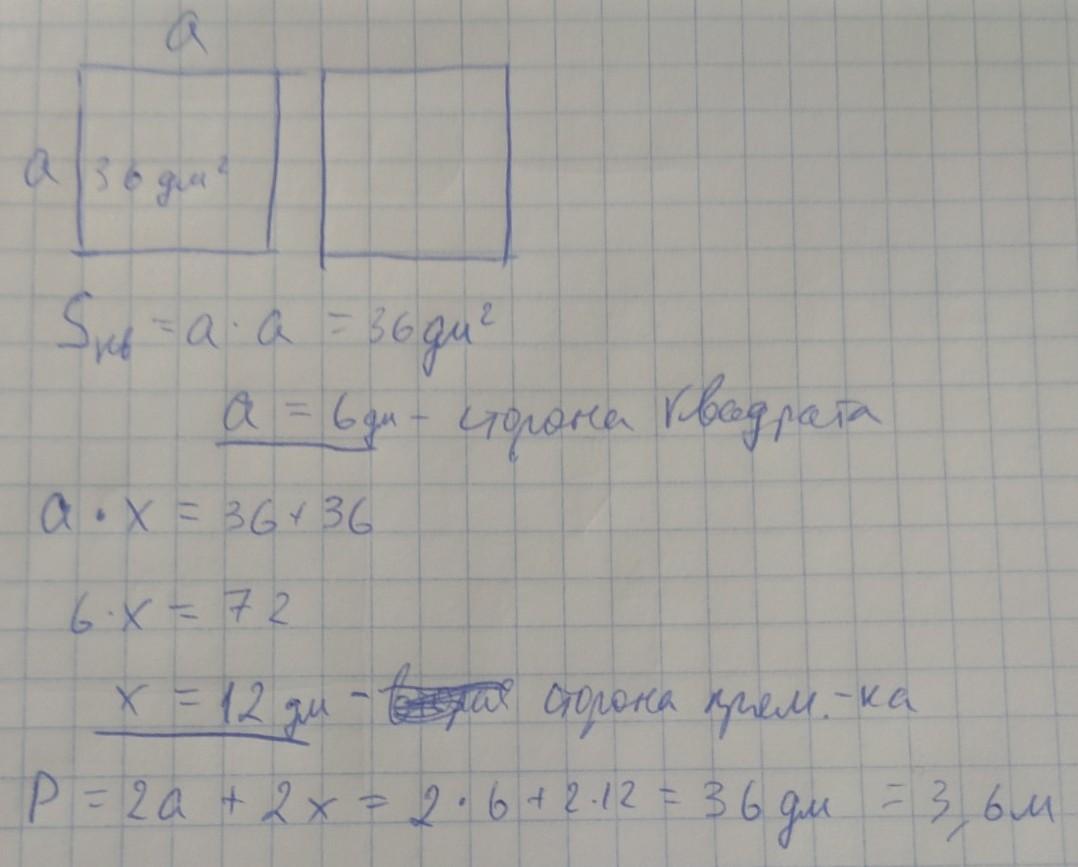 a
a 36 дм²
Sкв = a · a = 36 дм²
a = 6 дм - сторона квадрата
a · x = 36 + 36
6 · x = 72
x = 12 дм - сторона прям.-ка
P = 2a + 2x = 2 · 6 + 2 · 12 = 36 дм = 3,6 м